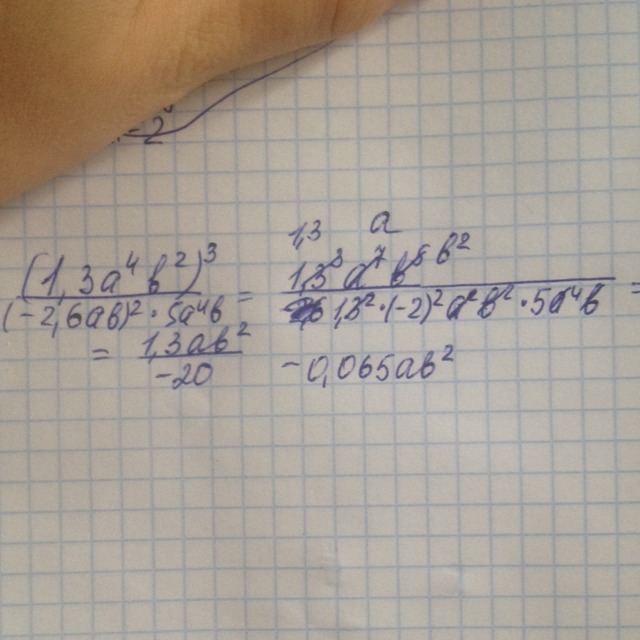 -2
1,3 a
(1,3a⁴b²)³ / (-2,6ab)²·5a⁴b = 1,3³a⁷b⁵b² / 1,3²·(-2)²a²b²·5a⁴b =
= 1,3ab² / -20 -0,065ab²